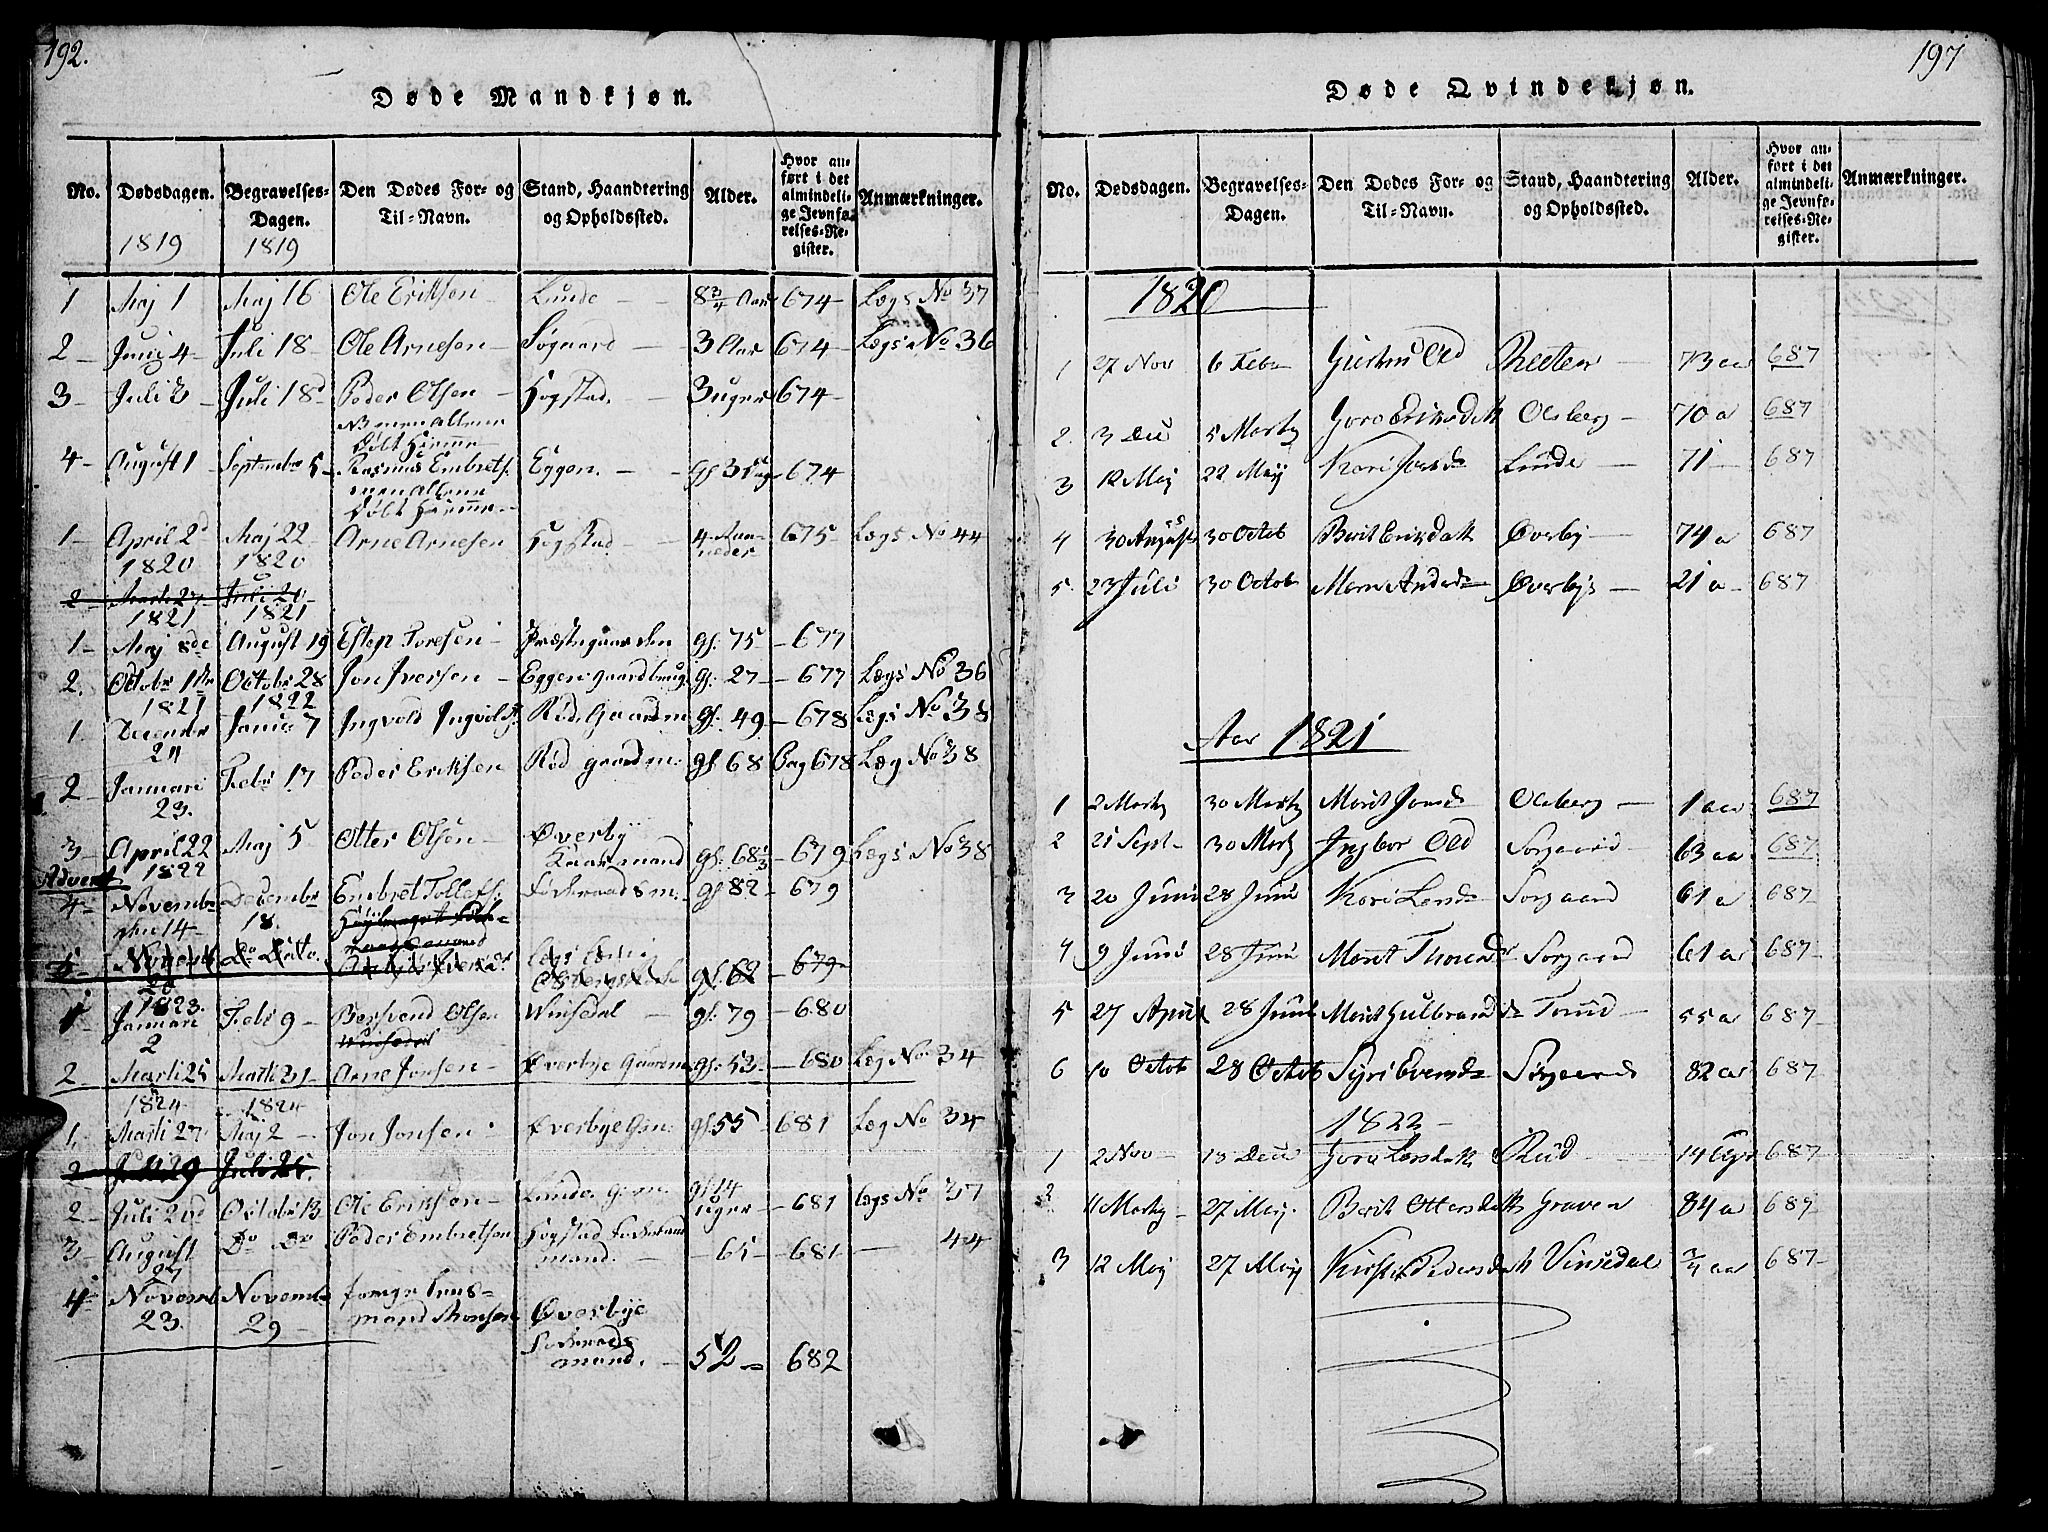 192.
Døde Mandkjøn.
No. Dødsdagen. Begravelses-Dagen. Den Dødes For- og Til-Navn. Stand, Haandtering og Opholdssted. Alder. Hvor anført i det almindelige Jevnførelses-Register. Anmærkninger.
1819 1819
1 Maj 1 Maj 16 Ole Eriksen Lunde 8 3/4 Aar 674 Lægs No 37
2 Junij 4 Juli 18 Ole Arnesen Søgaard 3 Aar 674 Lægs No 36
3 Juli 3 Juli 18d Peder Olsen Hogstad. 3 uger 674
døbt hiemme
4 August 1 September 5 Rasmus Embrets. Eggen. 674
døbt hiemme
1 April 2d Maj 22 Arne Arnesen Hogstad 4 Maaneder 675 Lægs No 44
1820 1820
2 Marti 27 Juli 20
1821 1821
1 Maj 8de August 19 Estep Toresen Præstegaarden gl. 75 677
2. Octobr 1 Octobr 28 Jon Iversen Eggen gaardbrug gl. 27 677 Lægs No 36
1821 1822
1 December 24 Januar 7 Ingvold Ingvolds. Rød. Gaardm gl. 49 678 Lægs No 38
2 Januari 23. Febr 17 Peder Eriksen Rød gaardm: gl 68 Pag 678 Læg No 38
3 April 22 Maj 5 Otter Olsen Øverby Kaarmand gl. 68 1/3 679 Lægs No 38
Advent 1822
4 Novembr den 14 Decembr 18. Embret Tollefs: Forkraadsm: gl 82 679
Novemb 26 Do Dito. gl. 62 679
1823.
1 Januari 2 Febr 9 Bersvend Olsen Winsedal gl. 79 680
2 Marti 25 Marti 31 Arne Jonsen Øverbye Gaarm gl. 53 680 Læg No 34
1824 1824
1. Marti 27 Maj 2 Jon Jonsen Øverbye Gm: gl 55 681 Læg No 34
2 Juli 29 Juli 25.
2 Juli 20d Octobr 13 Ole Eriksen Lunde gm. gl 14 uger 681 Lægs No 37
3 August 27 Do Do Peder Embretsen Hogstad Forkraadmand. 65 681 44
4 Novemb 23. Novembr 29 mand Monsen Øverbye Forkraadsmand. 52 682
197
Døde Qvindekjøn.
No. Dødsdagen. Begravelses-Dagen. Den Dødes For- og Til-Navn. Stand, Haandtering og Opholdssted. Alder. Hvor anført i det almindelige Jevnførelses-Register. Anmærkninger.
1820
1 27 Nov 6 Febr Old 73 aar 687
2. 3 Dec 5 Marty Goro Eriksdatt Olsberg 70 a 687
3 12 Maj 22 Maij Kari Lunde 71 687
4 30 August 30 Octob Berit Eriksdatt Øverby 74 a 687
5. 23 Juli 30 Octob Maren Andsd Øverbye 21 a 687
Aar 1821
1 2 Marty 30 Marty Marit Jonsd Olsberg 1 aar 687
2 21 Sept 30 Marty Ingbor Old Sorgaard 63 aar 687
3 20 Junii 28 Junii Kari Larsd Sorgaard 61 a 687
4 9 Junii 28 Junii Marit Thorsd Sorgaard 61 ar 687
5 27 April 28 Junii Marit Gulbrandsd 55 a 687
6 10 Octob 28 Octob Syri Evensd Sorgaard 82 ar 687
1822
1 2 Nov 18 Dec Goro Larsdatt Rud 14 687
2 11 Marty 27 Maj. Berit Ottersdatt Graven 84 a 687
3 12 Maj 27 Maij Kirsti Pedersdatt Vinsedal 3/4 aar 687